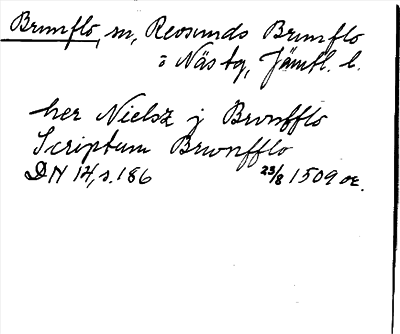 Brunflo, sn, Revsunds Brunflo
: Näs tg, Jämtl. l.
her Nielsz j Brvnfflo
Scriptum Brwnfflo
DN 14, s. 186 23/8 1509 or.